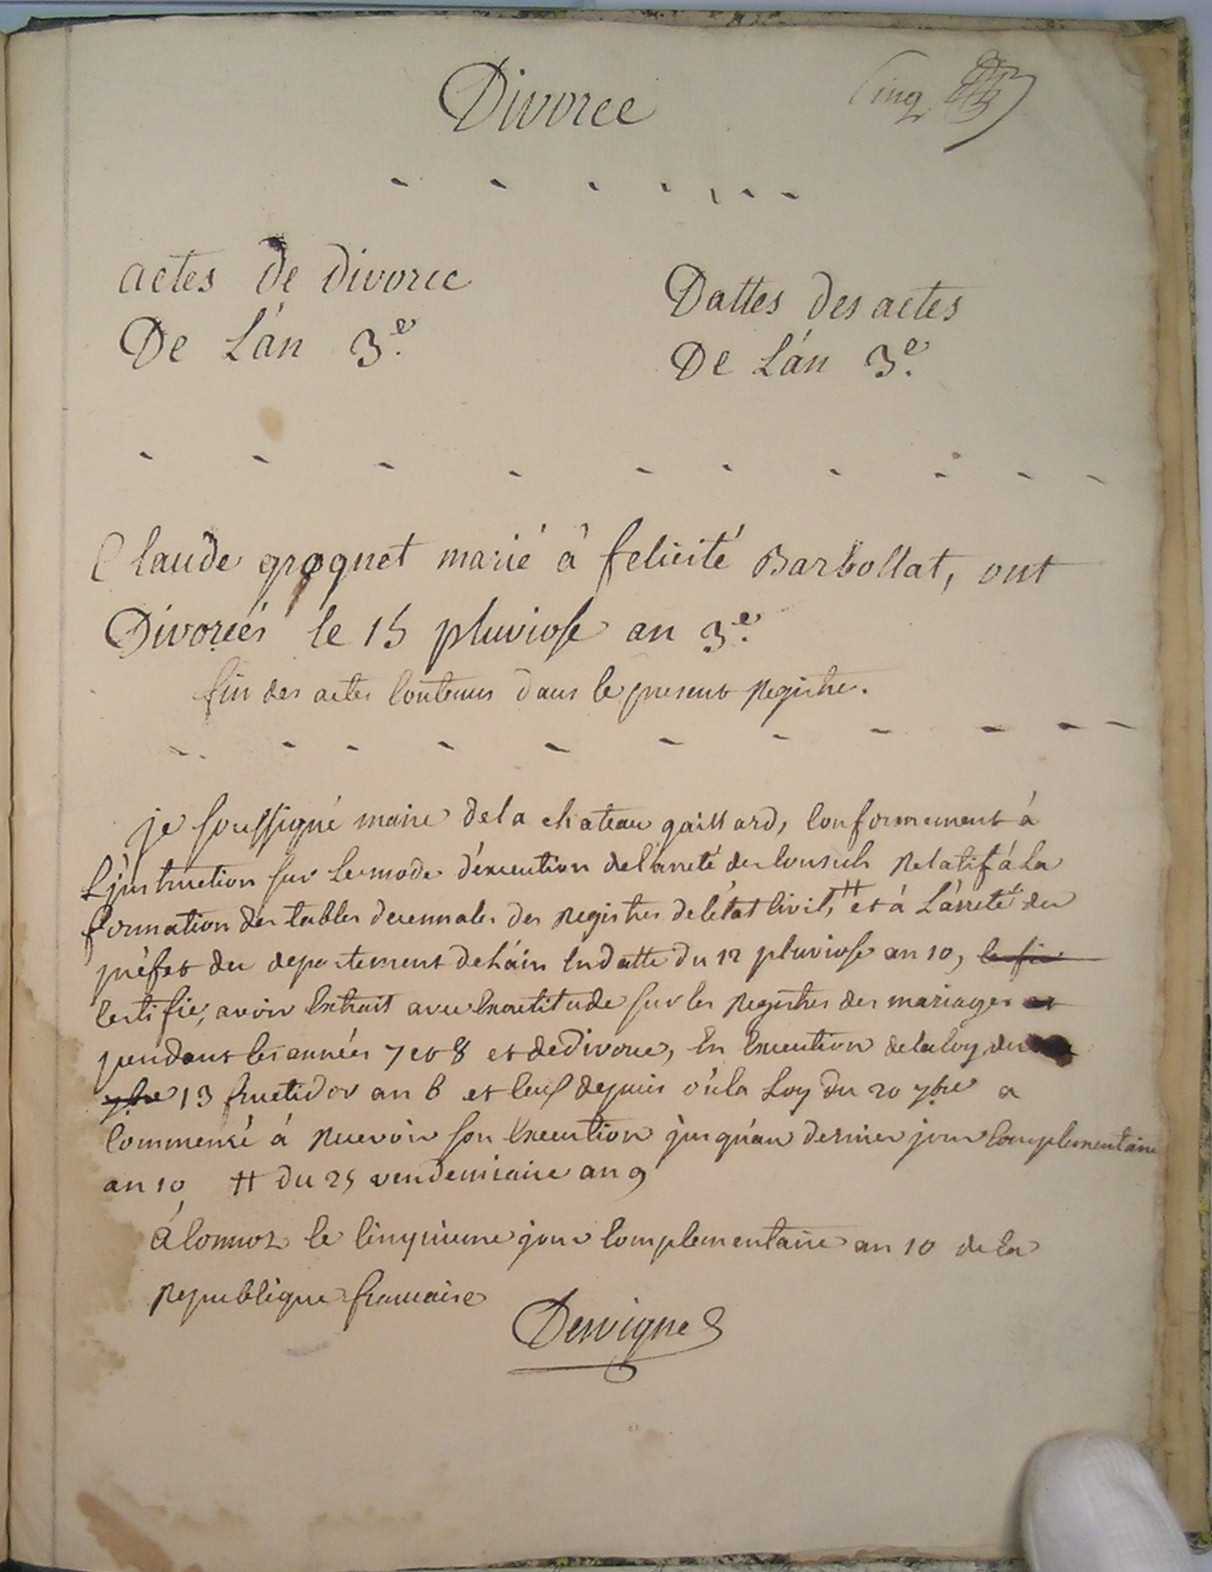 Divorce
Cinq
actes de divorce
De L'an 3e.
Dattes des actes
De L'an 3e.
Claude groguet marié à felicité Barbollat, ont
Divorcés le 15 pluviose an 3e.
fin des actes Contenus dans le present Registre.
je soussigné maire dela chateau gaillard, Conformement à
L'jnstruction sur Le mode d'éxecution de l'arreté des Consuls Relatif á La
formation des tables decennales des Registres de l'état Civil, # et á L'arreté du
préfet du departement de L'ain En datte du 12 pluviose an 10,
Certifie, avoir Extrait avec Exactitude sur les Registres des mariages et
pendant les années 7 et 8 et de Divorce, En Execution de la loy du
7bre 13 fructidor an 6 et ceux depuis où la Loy du 20 7bre a
Commencé á Recevoir son Execution jusqu'au dernier jour Complementaire
an 10 # du 25 vendemiaire an 9
á Cormoz le Cinquieme jour Complementaire an 10 de la
Republique francaise
Dervignes